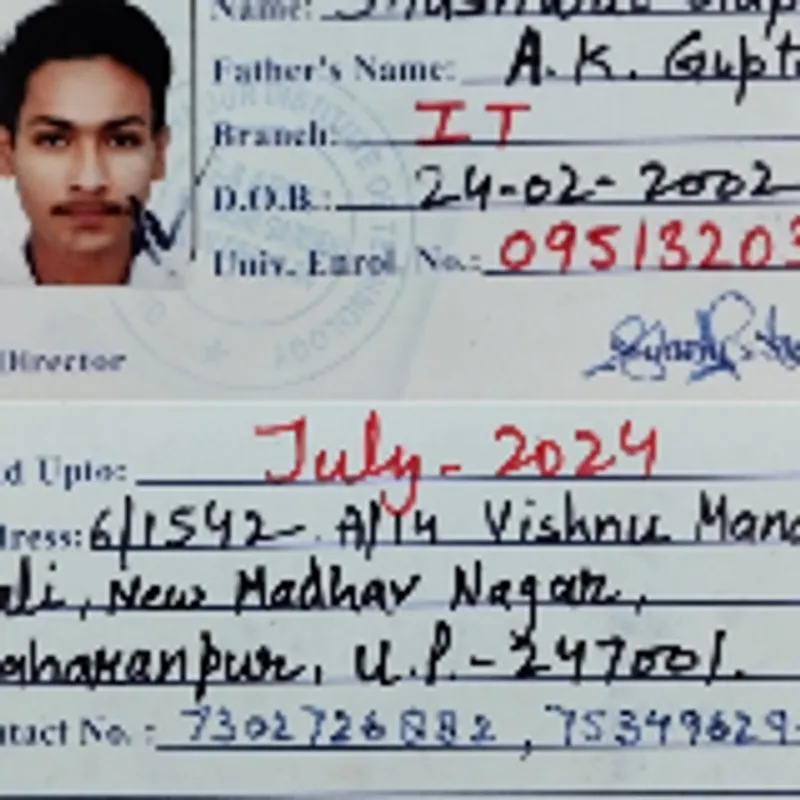 Name:
Father's Name: A. K. Gupt
Branch: IT
D.O.B.: 24-02-2002
Univ. Enrol. No.: 09513203
Director
d Upto: July - 2024
ress: 6/1542 A/14 Vishnu Mand
ali, New Madhav Nagar,
aharanpur, U.P.-247001.
ntact No. : 7302726882 , 75349629